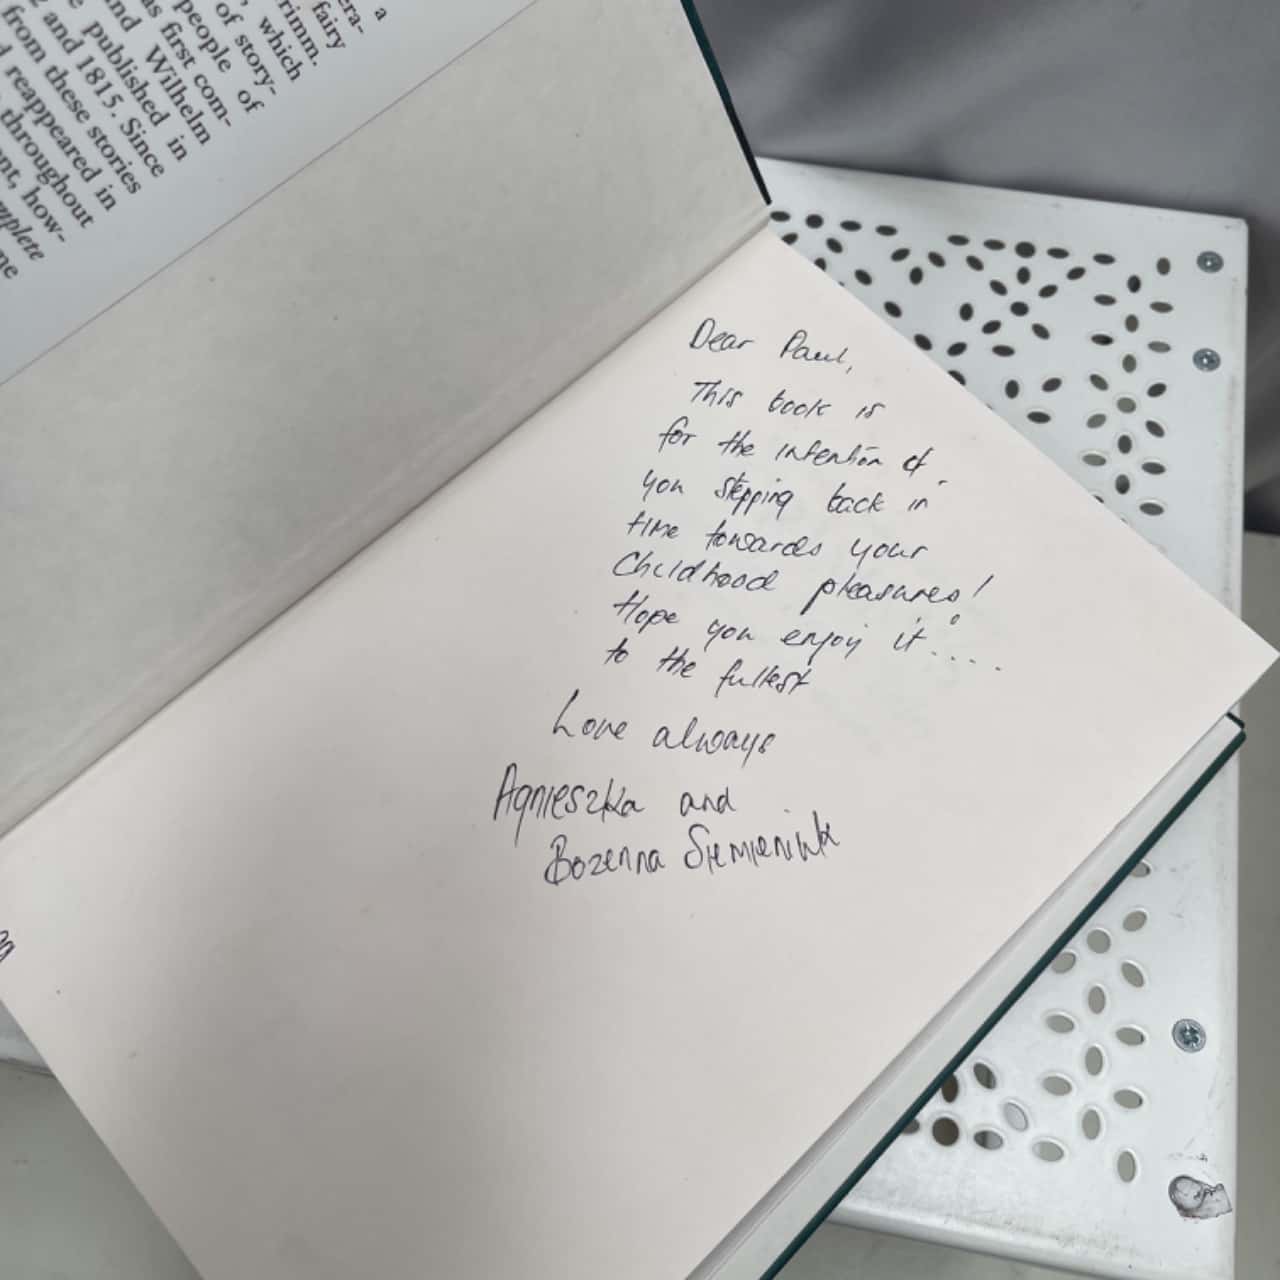 a
era-
fairy
rimm.
, which
of story-
people of
as first com-
nd Wilhelm
published in
and 1815. Since
from these stories
d reappeared in
throughout
nt, how-
mplete
ne
Dear Paul,
This book is
for the intention of
you stepping back in
time towards your
Childhood pleasures!
Hope you enjoy it.....
to the fullest
Love always
Agnieszka and
Bozenna Siemieniuk